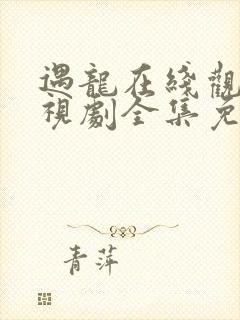 遇龍在綫觀
視劇全集免
青萍